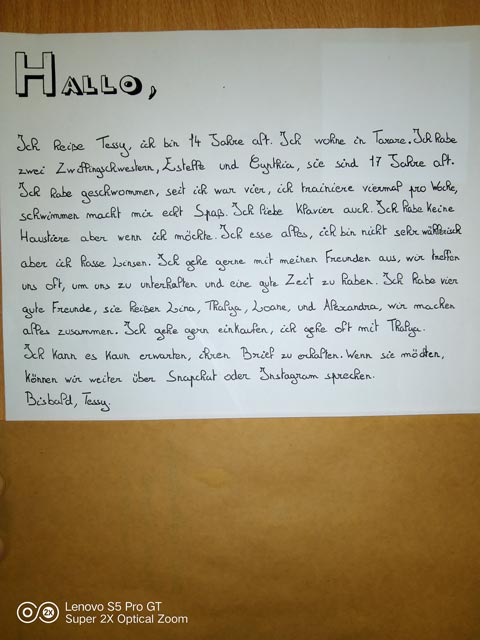 HALLO,
Ich heiße Tessy, ich bin 14 Jahre alt. Ich wohne in Tarare. Ich habe
zwei Zwillingschwestern, Estelle und Cynthia, sie sind 17 Jahre alt.
Ich habe geschwommen, seit ich war vier, ich trainiere viermal pro Woche,
schwimmen macht mir echt Spaß. Ich liebe Klavier auch. Ich habe keine
Haustiere aber wenn ich möchte. Ich esse alles, ich bin nicht sehr wählerisch
aber ich hasse Linsen. Ich gehe gerne mit meinen Freunden aus, wir treffen
uns oft, um uns zu unterhalten und eine gute Zeit zu haben. Ich habe vier
gute Freunde, sie heißen Lina, Thalya, Loane, und Alexandra, wir machen
alles zusammen. Ich gehe gern einkaufen, ich gehe oft mit Thalya.
Ich kann es kaun erwarten, ihren Brief zu erhalten. Wenn sie möchten,
können wir weiter über Snapchat oder Instagram sprechen.
Bisbald, Tessy.
Lenovo S5 Pro GT
Super 2X Optical Zoom